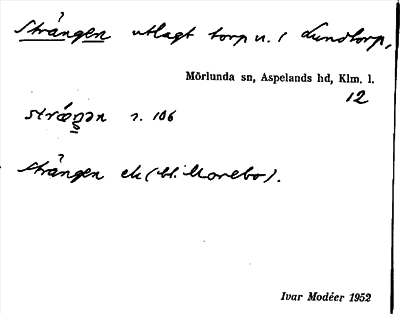 Strången utlagt torp u. 1 Lundtorp,
Mörlunda sn, Aspelands hd, Klm. l.
12
r. 106
Strången ek (bl. Morebo).
Ivar Modéer 1952